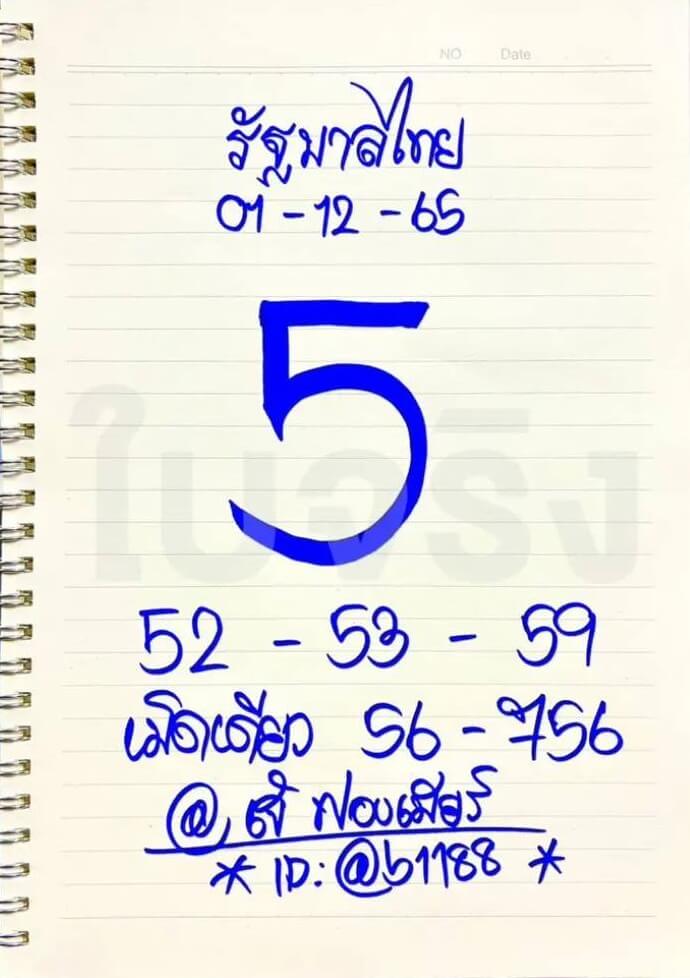 NO Date
รัฐบาลไทย
01 - 12 - 65
5
ใบจริง
52 - 53 - 59
เม็ดเดียว 56 - 756
@ เจ๊ ฟองเบียร์
* ID: @b1188 *